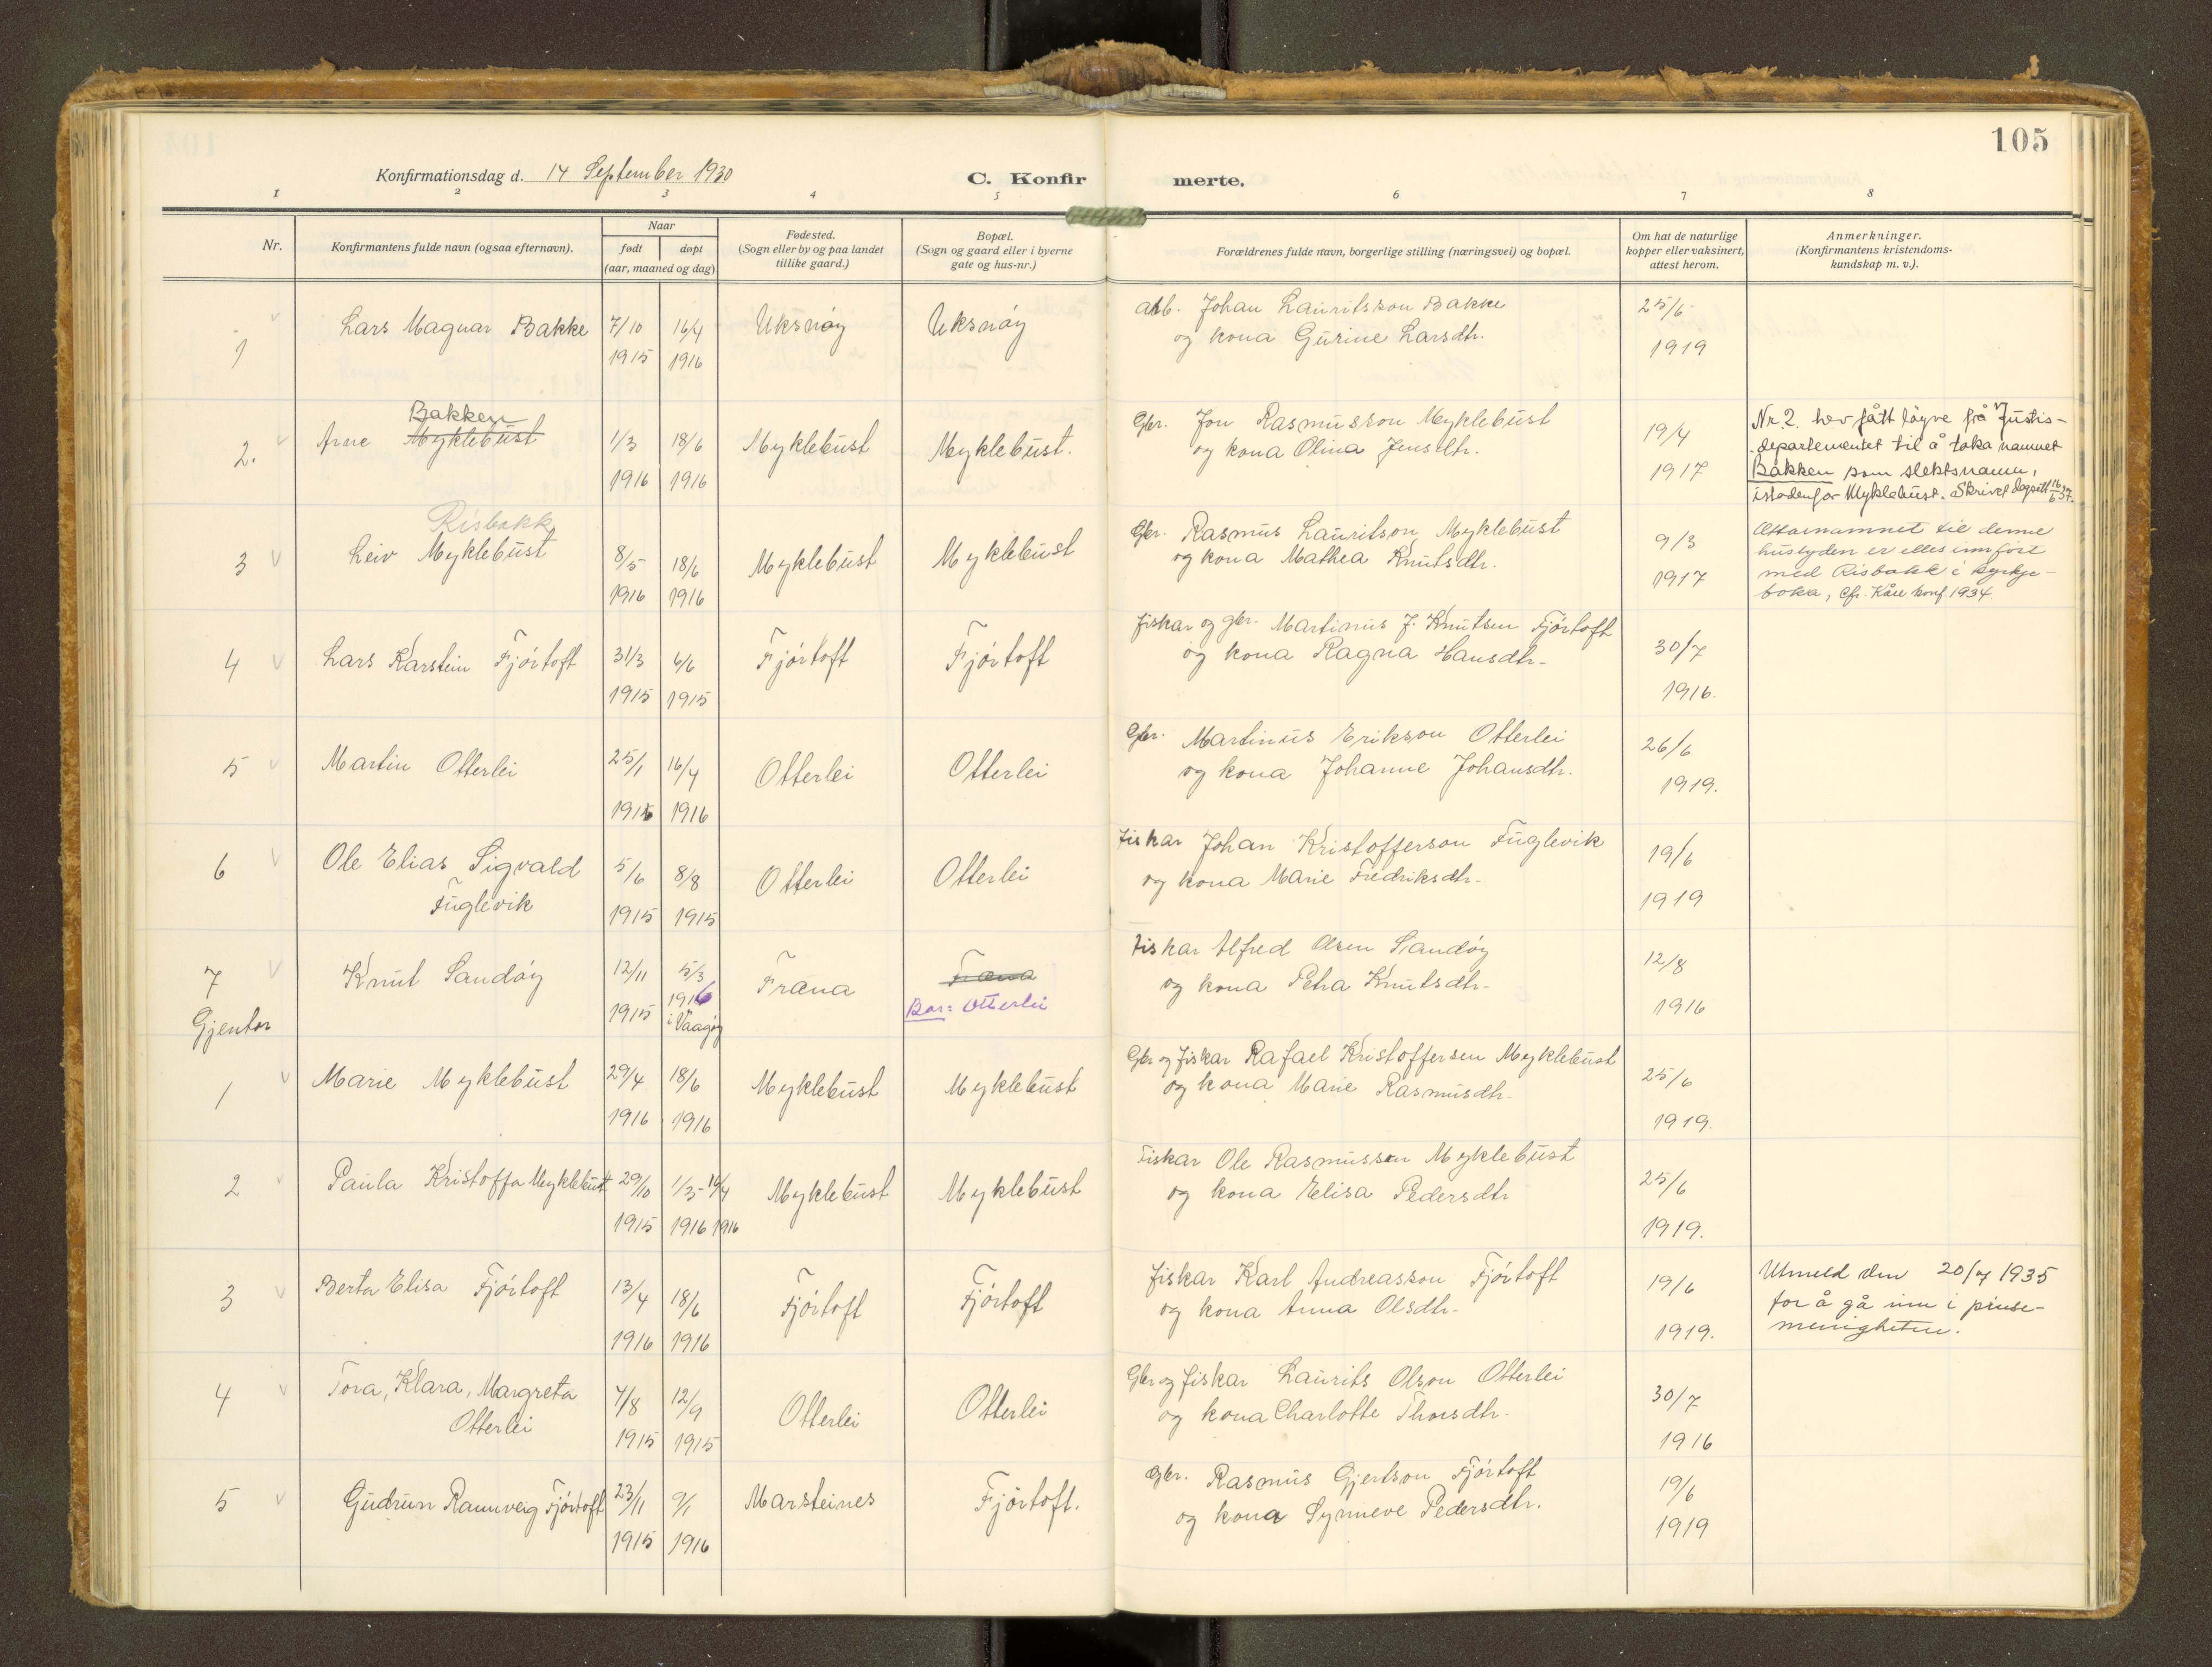 105
Konfirmationsdag d. 14 September 1930
C. Konfirmerte.
1 2 3 4 5 6 7 8
Nr.
Konfirmantens fulde navn (ogsaa efternavn).
Naar
født døpt
(aar, maaned og dag)
Fødested.
(Sogn eller by og paa landet
tillike gaard.)
Bopæl.
(Sogn og gaard eller i byerne
gate og hus-nr.)
Forældrenes fulde navn, borgerlige stilling (næringsvei) og bopæl.
Om hat de naturlige
kopper eller vaksinert,
attest herom.
Anmerkninger.
(Konfirmantens kristendoms-
kundskap m. v.).
1 Lars Magnar Bakke 7/10 16/4 Uksnøy Uksnøy arb. Johan Lauritsson Bakke 25/6
1915 1916 og kona Gurine Larsdtr. 1919
Bakken
2. Arne Myklebust 1/3 18/6 Myklebust Myklebust. Gbr. Jon Rasmusson Myklebust 19/4
1916 1916 og kona Olina Jensdtr. 1917
Nr. 2. hev fått løyve frå Justis-
departementet til å taka namnet
Bakken som slektsnamn,
istadenfor Myklebust. Skriv dagsett 16/6 37.
Risbakk
3 Leiv Myklebust 8/5 18/6 Myklebust Myklebust Gbr. Rasmus Lauritson Myklebust 9/3
1916 1916 og kona Mathea Knutsdtr. 1917
Ættarnamnet til denne
huslyden er elles innført
med Risbakk i kyrkje-
boka, Cfr. Kåre konf 1934.
4 Lars Karstein Fjörtoft 31/3 6/6 Fjörtoft Fjörtoft fiskar og gbr. Martinus J. Knutsen Fjörtoft 30/7
1915 1915 og kona Ragna Hansdtr- 1916.
5 Martin Otterlei 25/1 16/4 Otterlei Otterlei Gbr. Martinus Erikson Otterlei 26/6
1916 1916 og kona Johanne Johansdtr. 1919.
6 Ole Elias Sigvald 5/6 8/8 Otterlei Otterlei Fiskar Johan Kristofferson Fuglevik 19/6
Fuglevik 1915 1915 og kona Marie Fredriksdtr- 1919
7 Knut Sandöy 12/11 5/3 Fræna Fræna Fiskar Alfred Olsen Sandöy 12/8
1915 1916 Bor: Otterlei og kona Petra Knutsdtr- 1916
i Vaagöy
Gjentor
1 Marie Myklebust 29/4 18/6 Myklebust Myklebust Gbr og fiskar Rafael Kristoffersen Myklebust 25/6
1916 1916 og kona Marie Rasmusdtr- 1919.
2 Paula Kristoffa Myklebust 29/10 1/3-16/4 Myklebust Myklebust Fiskar Ole Rasmussen Myklebust 25/6
1915 1916 1916 og kona Elisa Pedersdtr 1919.
3 Berta Elisa Fjörtoft 13/4 18/6 Fjörtoft Fjörtoft fiskar Karl Andreasson Fjörtoft 19/6
1916 1916 og kona Anna Olsdtr- 1919.
Utmeld den 20/7 1935
for å gå inn i pinse-
menigheten.
4 Tora, Klara, Margreta 7/8 12/9 Otterlei Otterlei Gbr og fiskar Laurits Olson Otterlei 30/7
Otterlei 1915 1915 og kona Charlotte Thorsdtr- 1916
5 Gudrun Rannveig Fjörtoft 23/11 9/1 Marsteines Fjörtoft. Gbr. Rasmus Gjertson Fjörtoft 19/6
1915 1916 og kona Synneve Pedersdtr. 1919